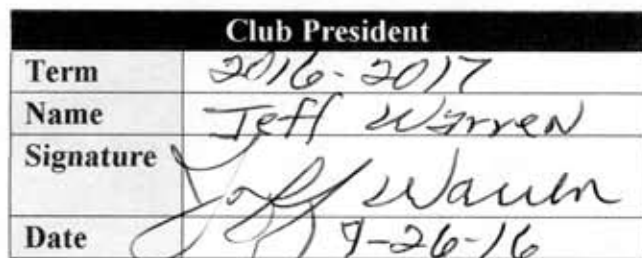 Club President
Term 2016-2017
Name Jeff Warren
Signature Jeff Warren
Date 9-26-16